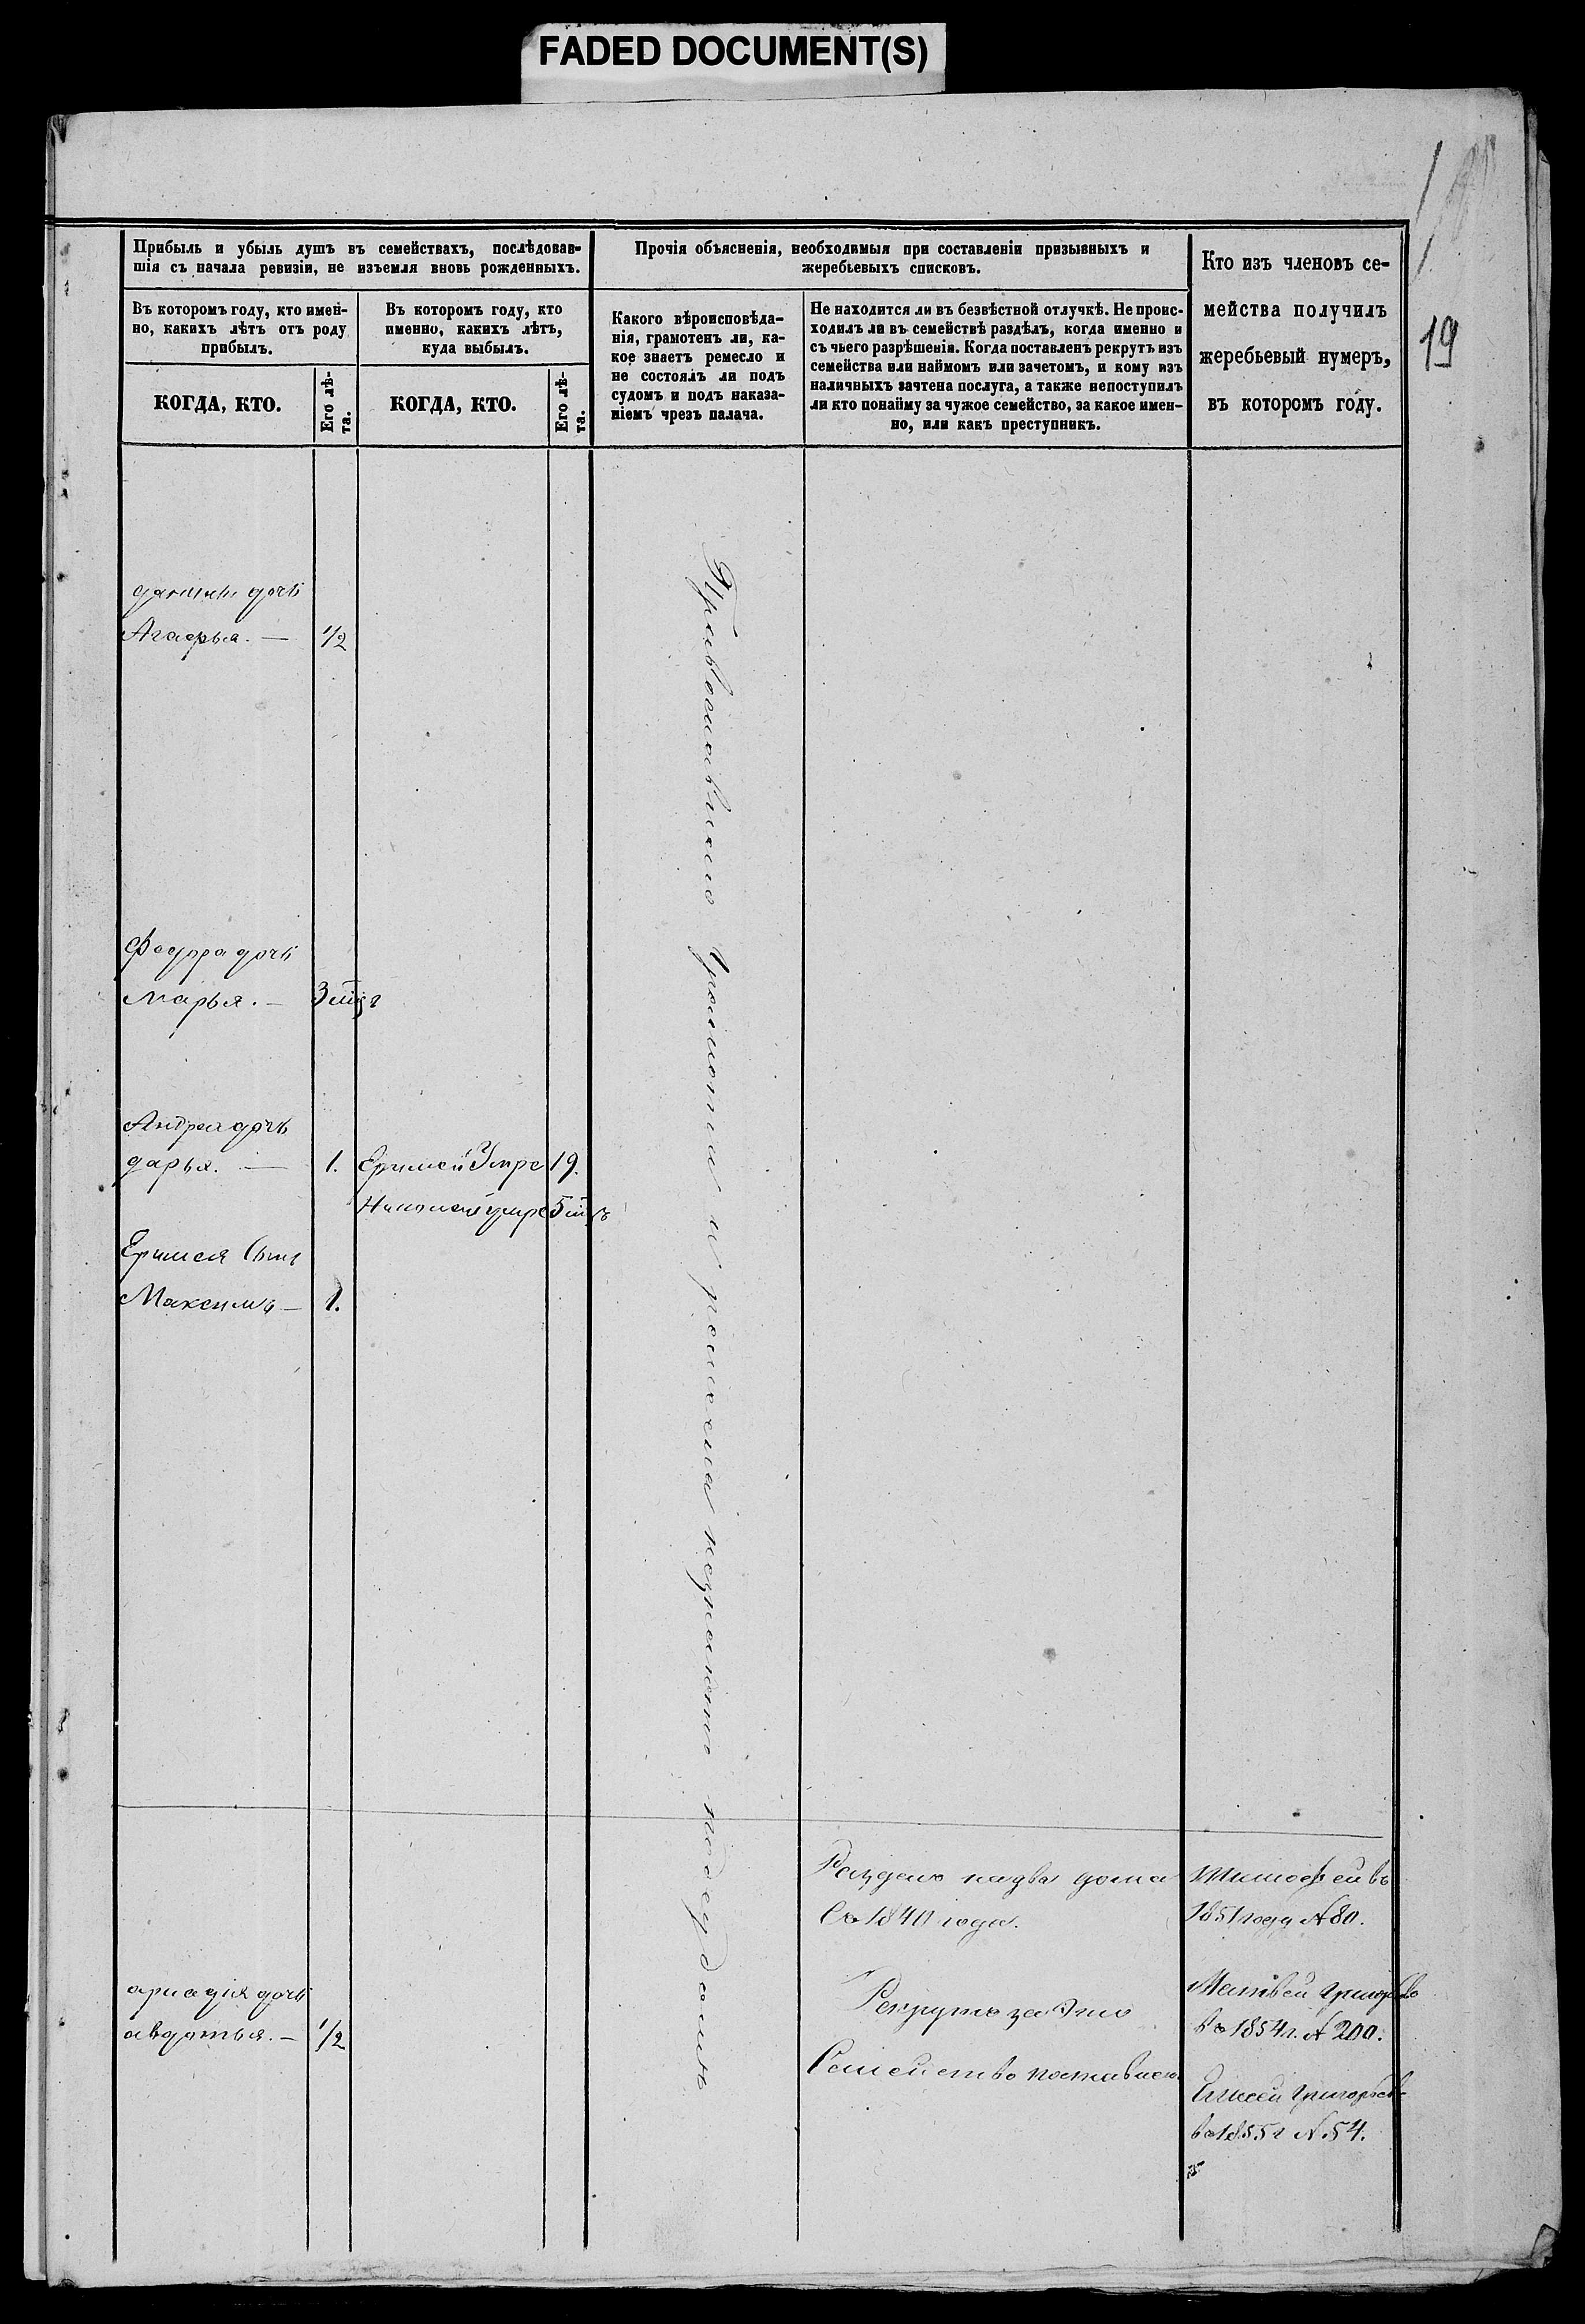 FADED DOCUMENT(S)
19
Прибыль и убыль душъ въ семействахъ, послѣдовав-
шія съ начала ревизіи, не изъемля вновь рожденныхъ.
Въ которомъ году, кто имен-
но, какихъ лѣтъ отъ роду
прибылъ.
КОГДА, КТО.
Его лѣ-
та.
Въ которомъ году, кто
именно, какихъ лѣтъ,
куда выбылъ.
КОГДА, КТО.
Его лѣ-
та.
Прочія объясненія, необходимыя при составленіи призывныхъ и
жеребьевыхъ списковъ.
Какого вѣроисповѣда-
нія, грамотенъ ли, ка-
кое знаетъ ремесло и
не состоялъ ли подъ
судомъ и подъ наказа-
ніемъ чрезъ палача.
Не находится ли въ безвѣстной отлучкѣ. Не проис-
ходилъ ли въ семействѣ раздѣлъ, когда именно и
съ чьего разрѣшенія. Когда поставленъ рекрутъ изъ
семейства или наймомъ или зачетомъ, и кому изъ
наличныхъ зачтена послуга, а также непоступилъ
ли кто понайму за чужое семейство, за какое имен-
но, или какъ преступникъ.
Кто изъ членовъ се-
мейства получилъ
жеребьевый нумеръ,
въ которомъ году.
дочь
Агафья. — 1/2
Федора дочь
Марья. — 3 мѣц
Андрея дочь
дарья. — 1. Еримей Умре 19.
Николай умре 5 мѣц
Еримея Сынъ
Максимъ — 1.
грамоты и ремесла незнаютъ подсудомъ
Разделъ на два дома
Съ 1840 года.
Рекрутъ за Это
Семейство поставленъ
Тимофей въ
1851 году № 80.
Матвей Григорьевъ
въ 1854 г. № 200.
Григорьевъ
въ 1855 г № 54.
дочь
авдотья. — 1/2